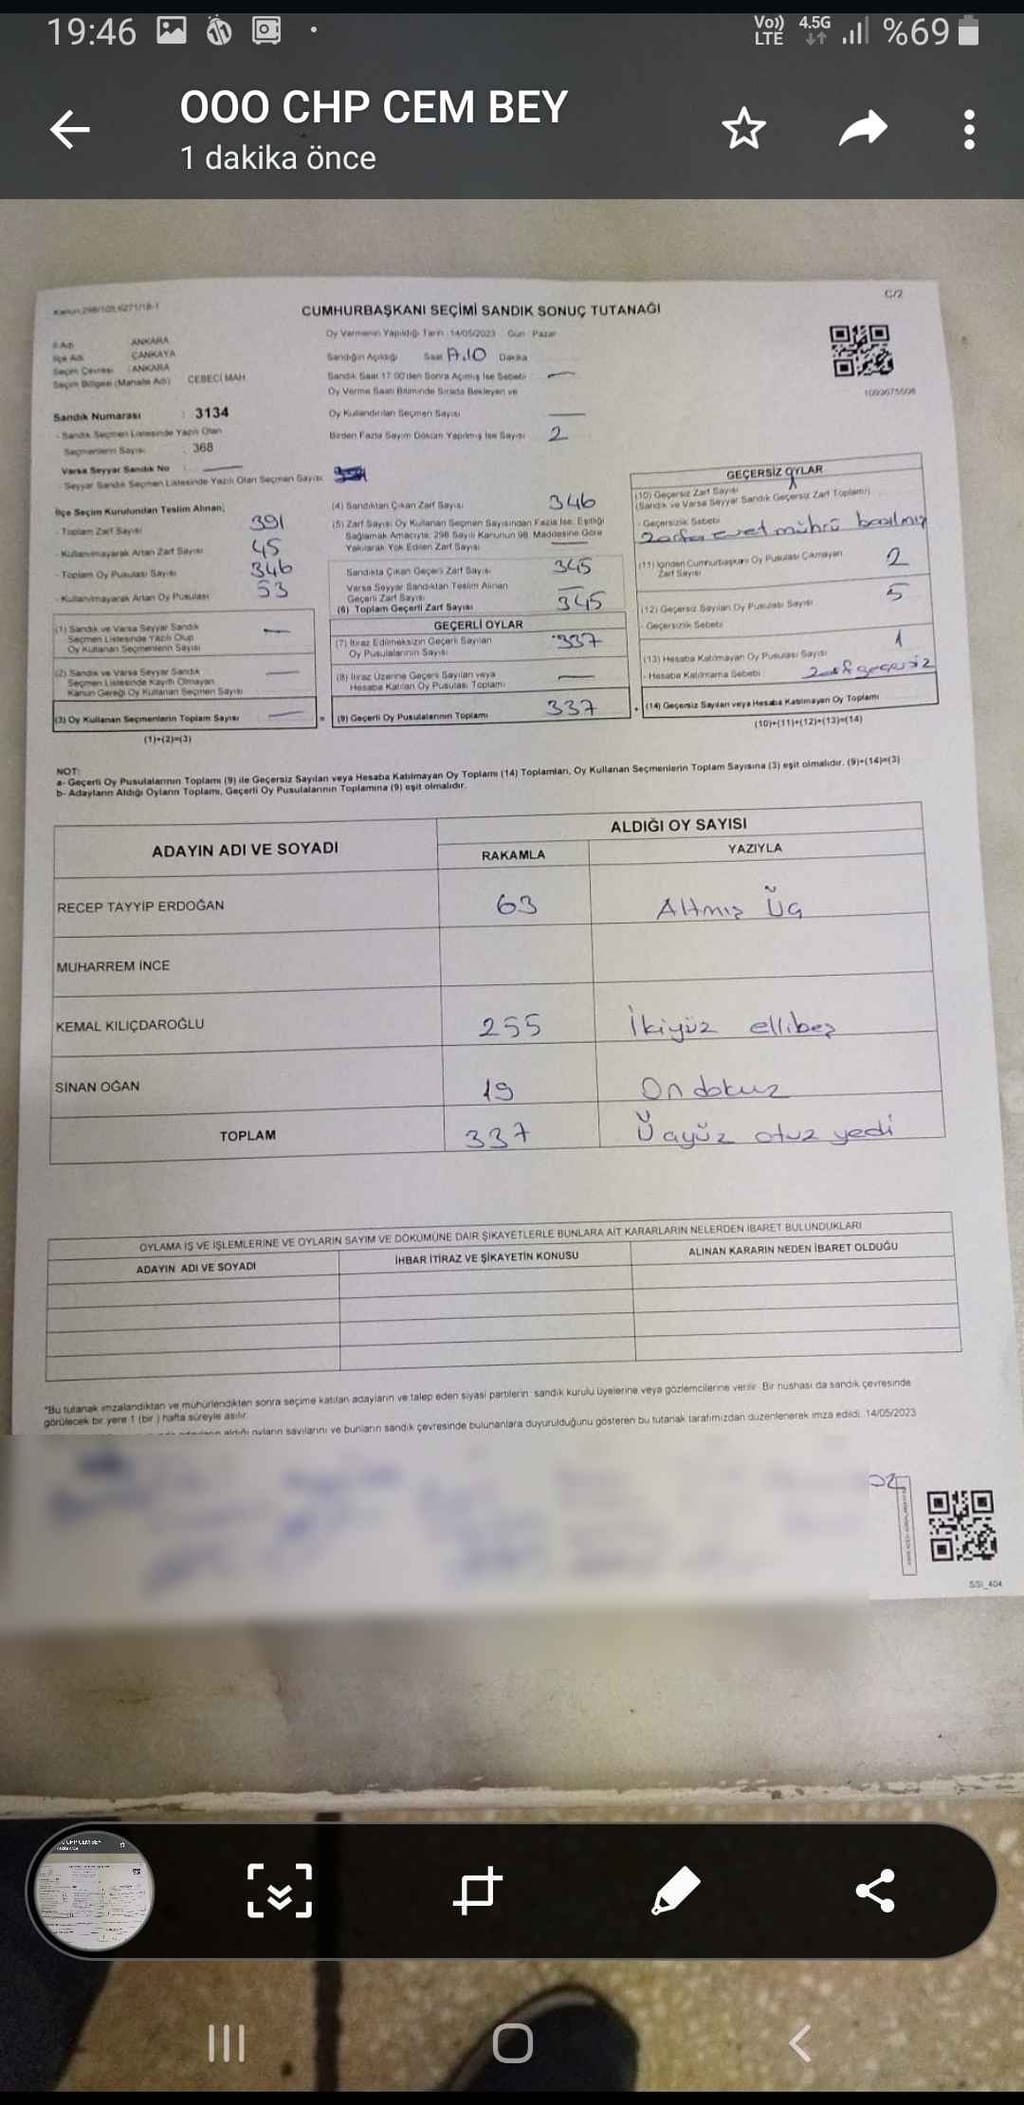 19:46
Vo)) LTE 4.5G %69
OOO CHP CEM BEY
1 dakika önce
C/2
CUMHURBAŞKANI SEÇİMİ SANDIK SONUÇ TUTANAĞI
İli Adı ANKARA
İlçe Adı ÇANKAYA
Seçim Çevresi : ANKARA
Seçim Bölgesi (Mahalle Adı) CEBECİ MAH
Sandık Numarası : 3134
- Sandık Seçmen Listesinde Yazılı Olan
Seçmenlerin Sayısı : 368
Varsa Seyyar Sandık No
- Seyyar Sandık Seçmen Listesinde Yazılı Olan Seçmen Sayısı
Oy Vermenin Yapıldığı Tarih : 14/05/2023 Gün : Pazar
Sandığın Açıldığı Saat 17.10 Dakika
Sandık Saat 17:00'den Sonra Açılmış İse Sebebi
Oy Verme Saati Bitiminde Sırada Bekleyen ve
Oy Kullandırılan Seçmen Sayısı
Birden Fazla Sayım Döküm Yapılmış İse Sayısı 2
İlçe Seçim Kurulundan Teslim Alınan;
- Toplam Zarf Sayısı 391
- Kullanılmayarak Artan Zarf Sayısı 45
- Toplam Oy Pusulası Sayısı 346
- Kullanılmayarak Artan Oy Pusulası 53
(1) Sandık ve Varsa Seyyar Sandık
Seçmen Listesinde Yazılı Olup
Oy Kullanan Seçmenlerin Sayısı
(2) Sandık ve Varsa Seyyar Sandık
Seçmen Listesinde Kayıtlı Olmayan
Kanun Gereği Oy Kullanan Seçmen Sayısı
(3) Oy Kullanan Seçmenlerin Toplam Sayısı
(1)+(2)=(3)
(4) Sandıktan Çıkan Zarf Sayısı 346
(5) Zarf Sayısı Oy Kullanan Seçmen Sayısından Fazla İse, Eşitliği
Sağlamak Amacıyla; 298 Sayılı Kanunun 98. Maddesine Göre
Yakılarak Yok Edilen Zarf Sayısı
Sandıkta Çıkan Geçerli Zarf Sayısı 345
Varsa Seyyar Sandıktan Teslim Alınan
Geçerli Zarf Sayısı
(6) Toplam Geçerli Zarf Sayısı 345
GEÇERLİ OYLAR
(7) İtiraz Edilmeksizin Geçerli Sayılan
Oy Pusulalarının Sayısı 337
(8) İtiraz Üzerine Geçerli Sayılan veya
Hesaba Katılan Oy Pusulası Toplamı
= (9) Geçerli Oy Pusulalarının Toplamı 337
GEÇERSİZ OYLAR
(10) Geçersiz Zarf Sayısı 1
(Sandık ve Varsa Seyyar Sandık Geçersiz Zarf Toplamı)
- Geçersizlik Sebebi
Zarfa evet mührü basılmış
(11) İçinden Cumhurbaşkanı Oy Pusulası Çıkmayan
Zarf Sayısı 2
(12) Geçersiz Sayılan Oy Pusulası Sayısı 5
- Geçersizlik Sebebi
(13) Hesaba Katılmayan Oy Pusulası Sayısı 1
- Hesaba Katılmama Sebebi Zarf geçersiz
+ (14) Geçersiz Sayılan veya Hesaba Katılmayan Oy Toplamı
(10)+(11)+(12)+(13)=(14)
NOT:
a- Geçerli Oy Pusulalarının Toplamı (9) ile Geçersiz Sayılan veya Hesaba Katılmayan Oy Toplamı (14) Toplamları, Oy Kullanan Seçmenlerin Toplam Sayısına (3) eşit olmalıdır. (9)+(14)=(3)
b- Adayların Aldığı Oyların Toplamı, Geçerli Oy Pusulalarının Toplamına (9) eşit olmalıdır.
ADAYIN ADI VE SOYADI
ALDIĞI OY SAYISI
RAKAMLA YAZIYLA
RECEP TAYYİP ERDOĞAN 63 Altmış Üç
MUHARREM İNCE
KEMAL KILIÇDAROĞLU 255 İkiyüz ellibeş
SİNAN OĞAN 19 On dokuz
TOPLAM 337 Üçyüz otuz yedi
OYLAMA İŞ VE İŞLEMLERİNE VE OYLARIN SAYIM VE DÖKÜMÜNE DAİR ŞİKAYETLERLE BUNLARA AİT KARARLARIN NELERDEN İBARET BULUNDUKLARI
ADAYIN ADI VE SOYADI İHBAR İTİRAZ VE ŞİKAYETİN KONUSU ALINAN KARARIN NEDEN İBARET OLDUĞU
*Bu tutanak imzalandıktan ve mühürlendikten sonra seçime katılan adayların ve talep eden siyasi partilerin sandık kurulu üyelerine veya gözlemcilerine verilir. Bir nüshası da sandık çevresinde
görülecek bir yere 1 (bir) hafta süreyle asılır.
aldığı oyların sayılarını ve bunların sandık çevresinde bulunanlara duyurulduğunu gösteren bu tutanak tarafımızdan düzenlenerek imza edildi. 14/05/2023
SSI_404